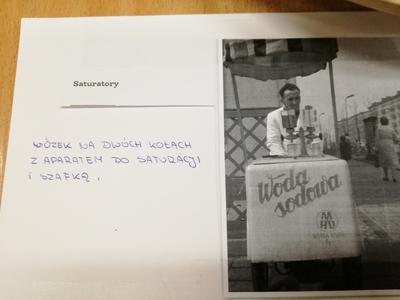 Saturatory
WÓZEK NA DWÓCH KOŁACH
Z APARATEM DO SATURACJI
I SZAFKĄ.
Woda
sodowa
MHD